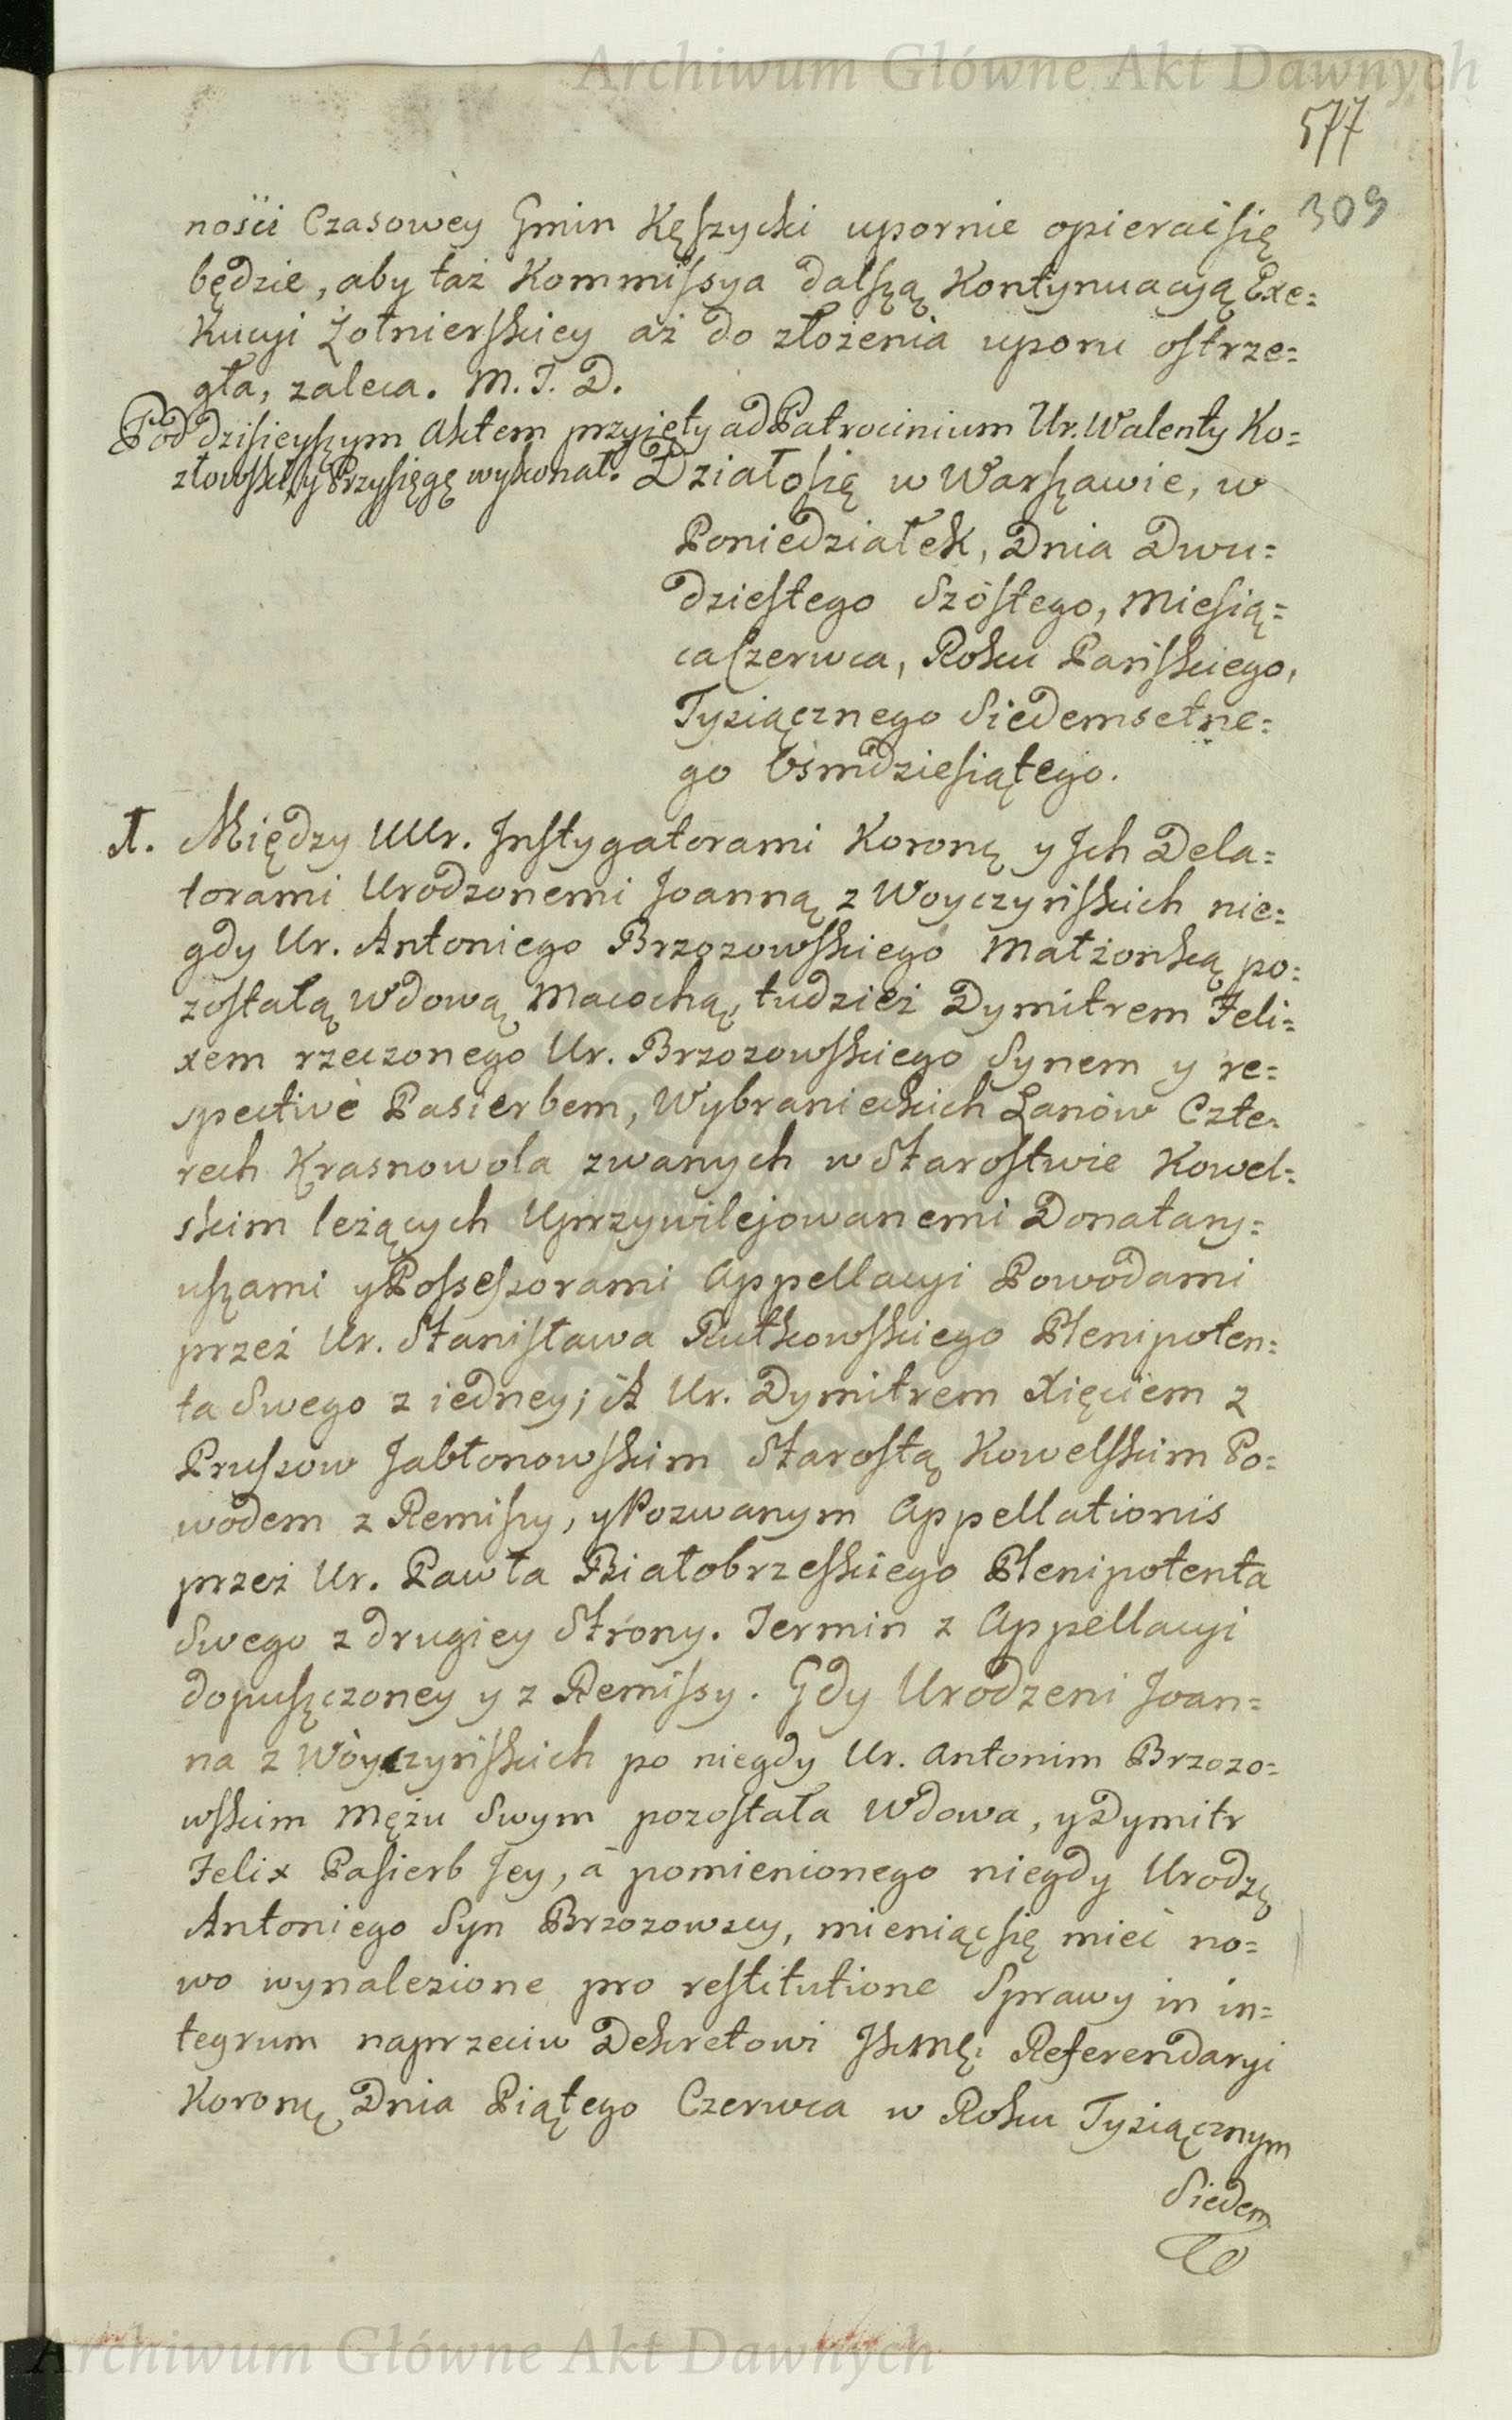 Archiwum Główne Akt Dawnych
577
309
ności Czasowey Gmin Kęszycki upornie opierać się
będzie, aby taż Kommissya dalszą Kontynuacyą Exe=
kucyi Żołnierskiey aż do złożenia uporu ostrze=
gła, zaleca. M. I. D.
Pod dzisieyszym Aktem przyięty ad Patrocinium Ur. Walenty Ko=
złowski, y Przysięgę wykonał. Działo się w Warszawie, w
Poniedziałek, Dnia Dwu=
dziestego Szóstego, Miesią=
ca Czerwca, Roku Pańskiego,
Tysiącznego Siedemsetne=
go Osmdziesiątego.
1. Między UUr. Instygatorami Koronę y Ich Dela=
torami Urodzonemi Joanną z Woyczyńskich nie=
gdy Ur. Antoniego Brzozowskiego Małżonką po=
zostałą Wdową Macochą, tudzież Dymitrem Feli=
xem rzeczonego Ur. Brzozowskiego Synem y re=
spectivè Pasierbem, Wybranieckich Łanów Czte=
rech Krasnowola zwanych w Starostwie Kowel=
skim leżących Uprzywilejowanemi Donatary=
uszami y Possessorami Appellacyi Powodami
przez Ur. Stanisława Rutkowskiego Plenipoten=
ta Swego z iedney; A Ur. Dymitrem Xięciem z
Prussow Jabłonowskim Starostą Kowelskim Po=
wodem z Remissy, y Pozwanym Appellationis
przez Ur. Pawła Białobrzeskiego Plenipotenta
Swego z drugiey Strony. Termin z Appellacyi
dopuszczoney y z Remissy. Gdy Urodzeni Joan=
na z Woyczyńskich po niegdy Ur. Antonim Brzozo=
wskim Mężu Swym pozostała Wdowa, y Dymitr
Felix Pasierb Jey, á pomienionego niegdy Urodzę
Antoniego Syn Brzozowscy, mieniąc się mieć no=
wo wynalezione pro restitutione Sprawy in in=
tegrum naprzeciw Dekretowi JkMci Referendaryi
Koronę Dnia Piątego Czerwca w Roku Tysiącznym
Siedem
Archiwum Główne Akt Dawnych